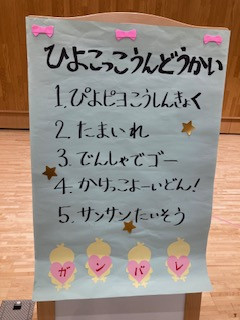 ひよこっこうんどうかい
1. ぴよピヨこうしんきょく
2. たまいれ
3. でんしゃでゴー
4. かけっこよーいどん！
5. サンサンたいそう
ガンバレ